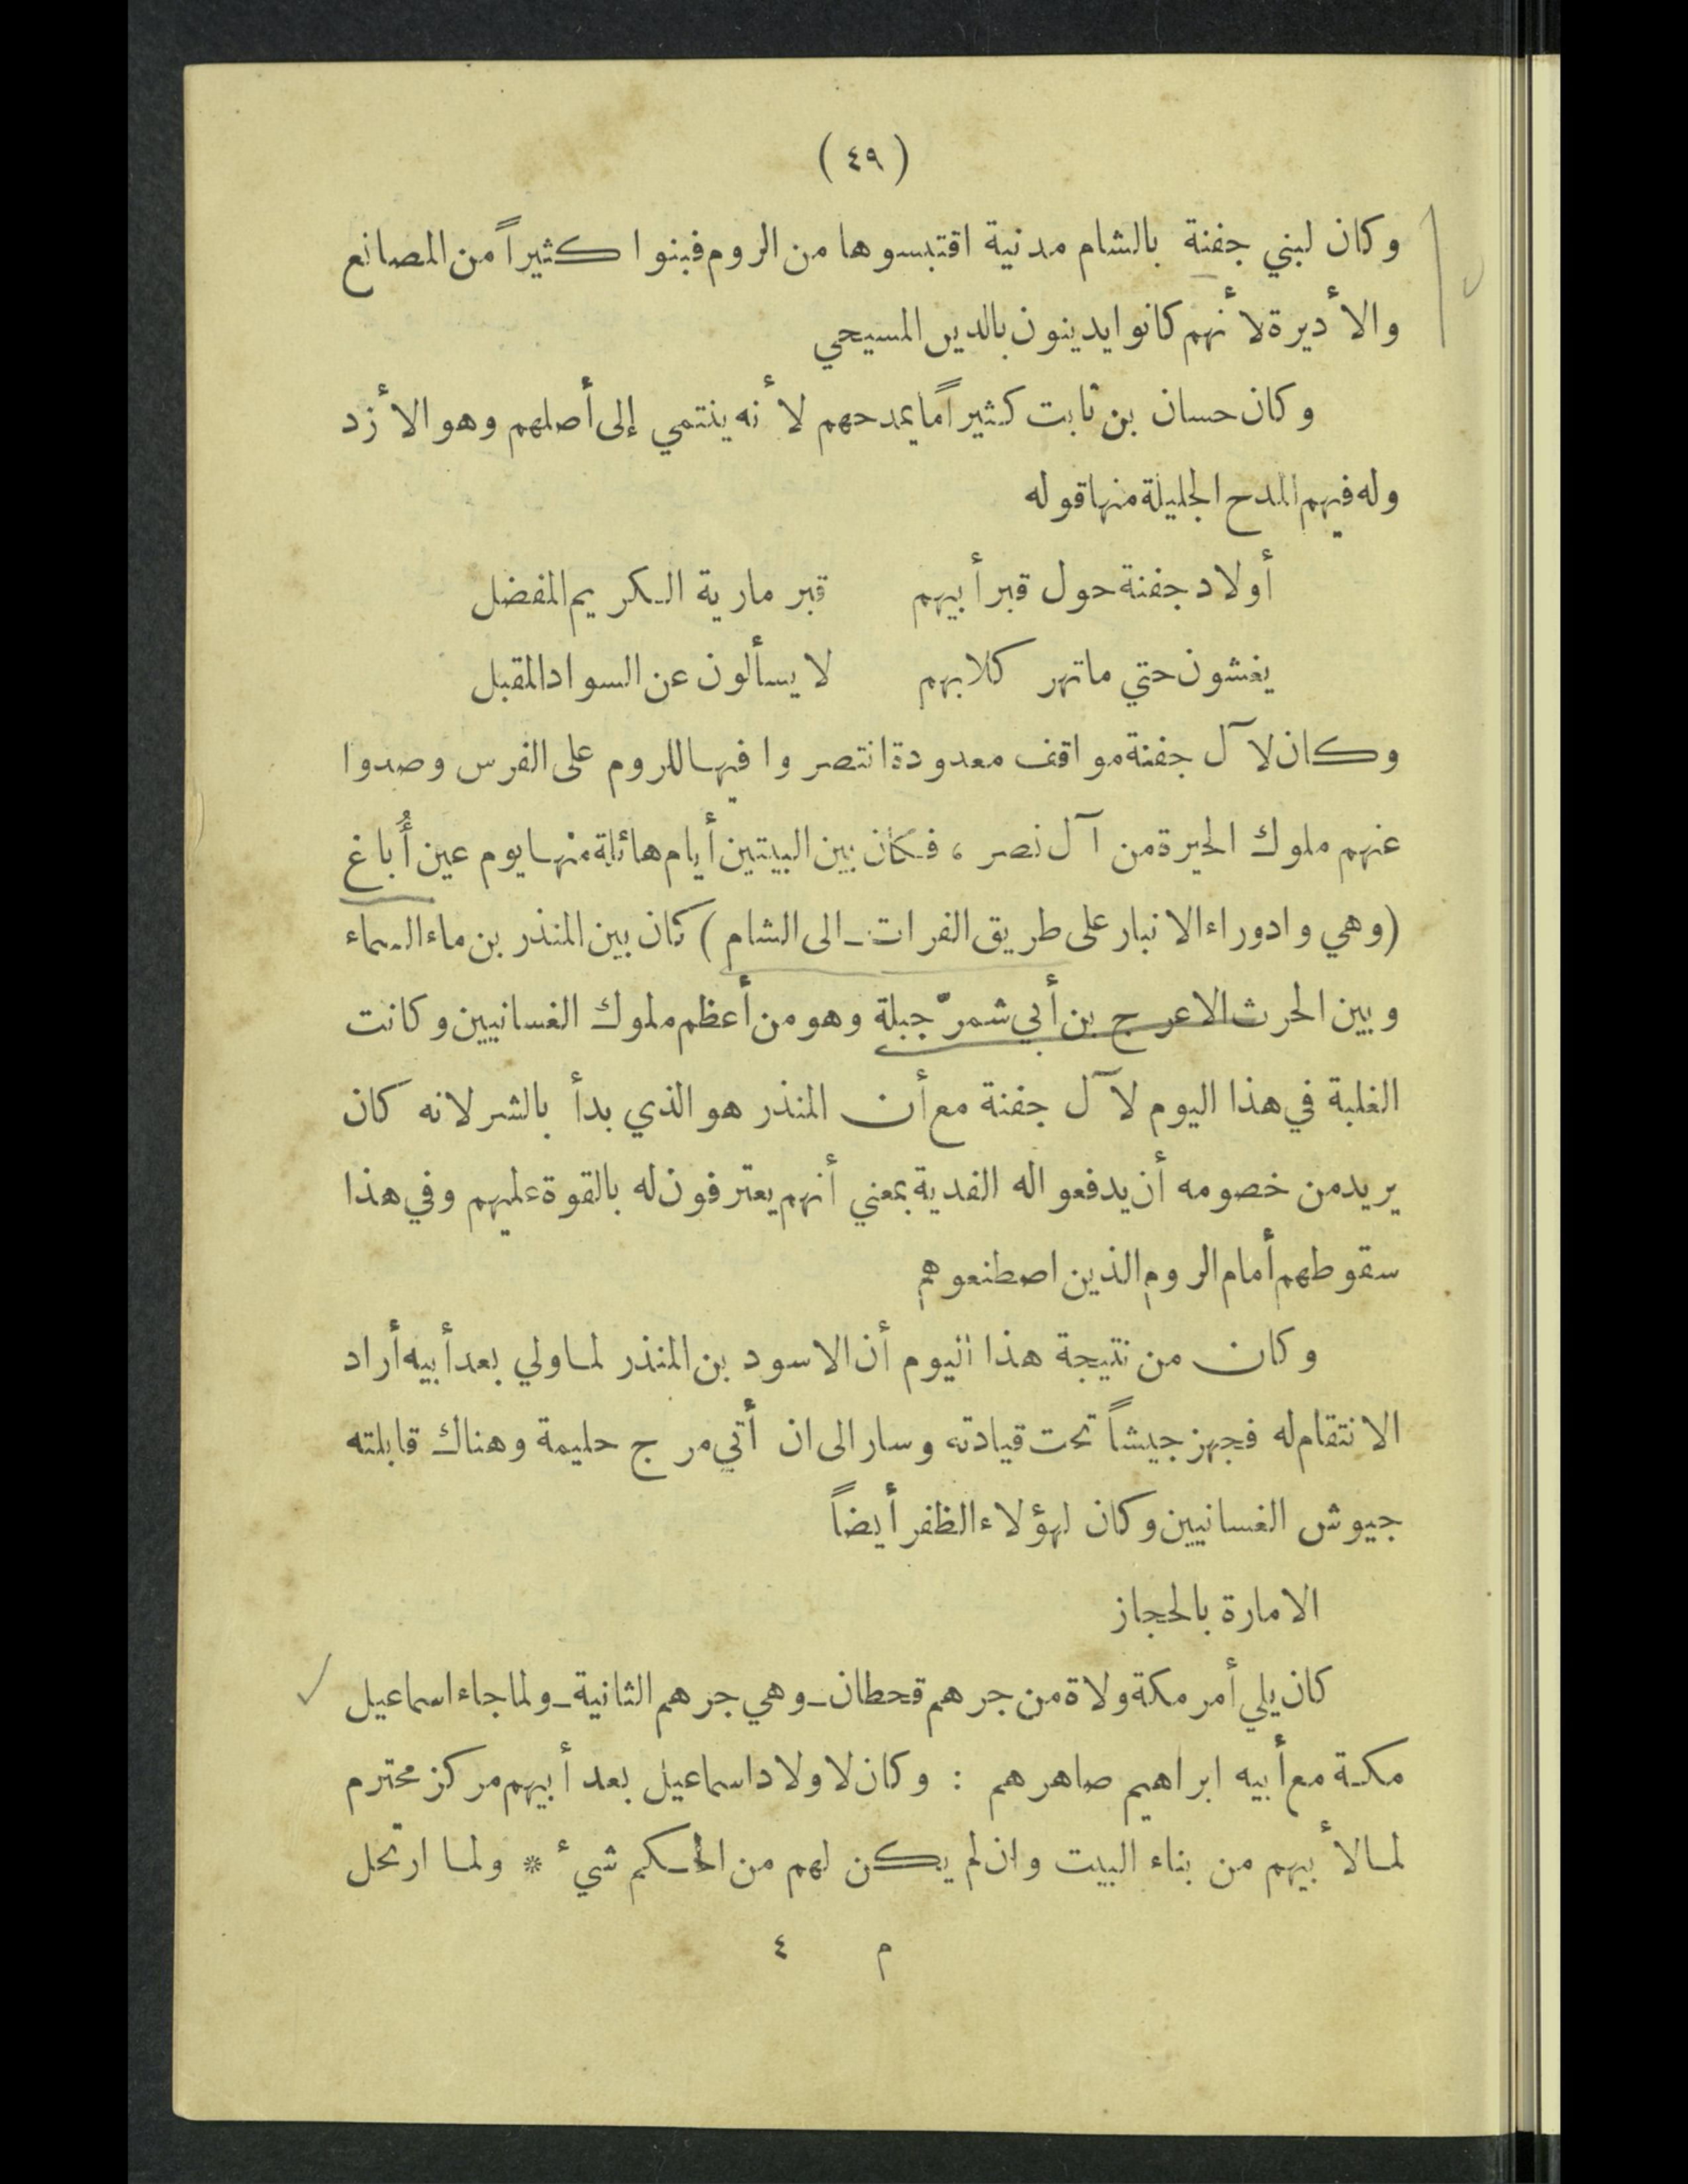 ( ٤٩ )
وكان لبني جفنة بالشام مدنية اقتبسوها من الروم فبنوا كثيراً من المصانع
والأديرة لأنهم كانوا يدينون بالدين المسيحي
وكان حسان بن ثابت كثيراً ما يمدحهم لأنه ينتمي إلى أصلهم وهو الأزد
وله فيهم المدح الجليلة منها قوله
أولاد جفنة حول قبر أبيهم قبر مارية الكريم المفضل
يغشون حتي ما تهر كلابهم لا يسألون عن السواد المقبل
وكان لآل جفنة مواقف معدودة انتصروا فيها للروم على الفرس وصدوا
عنهم ملوك الحيرة من آل نصر ، فكان بين البيتين أيام هائلة منها يوم عين أُباغ
(وهي واد وراء الانبار على طريق الفرات ـ الى الشام) كان بين المنذر بن ماء السماء
وبين الحرث الاعرج بن أبي شمرّ جبلة وهو من أعظم ملوك الغسانيين وكانت
الغلبة في هذا اليوم لآل جفنة مع أن المنذر هو الذي بدأ بالشر لانه كان
يريد من خصومه أن يدفعوا له الفدية بمعني أنهم يعترفون له بالقوة عليهم وفي هذا
سقوطهم أمام الروم الذين اصطنعوهم
وكان من نتيجة هذا اليوم أن الاسود بن المنذر لما ولي بعد أبيه أراد
الانتقام له فجهز جيشاً تحت قيادته وسار الى ان أتي مرج حليمة وهناك قابلته
جيوش الغسانيين وكان لهؤلاء الظفر أيضاً
الامارة بالحجاز
كان يلي أمر مكة ولاة من جرهم قحطان ـ وهي جرهم الثانية ـ ولما جاء اسماعيل
مكة مع أبيه ابراهيم صاهرهم : وكان لاولاد اسماعيل بعد أبيهم مركز محترم
لما لأبيهم من بناء البيت وان لم يكن لهم من الحكم شيء * ولما ارتحل
م ٤